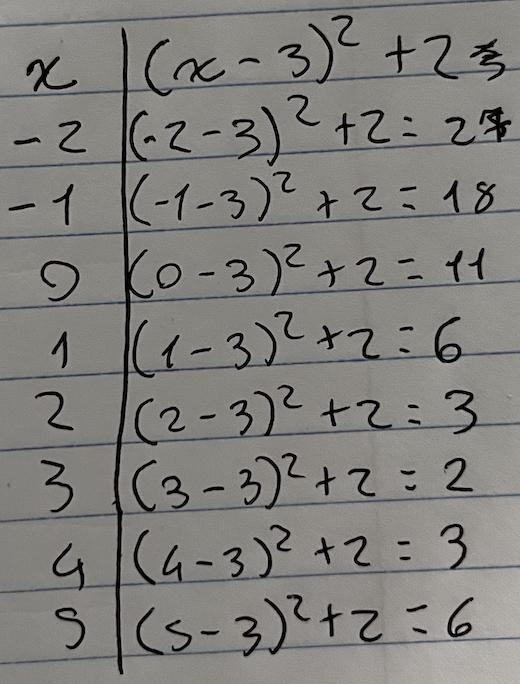 x | (x - 3)² + 2
-2 | (-2-3)² + 2 = 27
-1 | (-1-3)² + 2 = 18
0 | (0-3)² + 2 = 11
1 | (1-3)² + 2 = 6
2 | (2-3)² + 2 = 3
3 | (3-3)² + 2 = 2
4 | (4-3)² + 2 = 3
5 | (5-3)² + 2 = 6